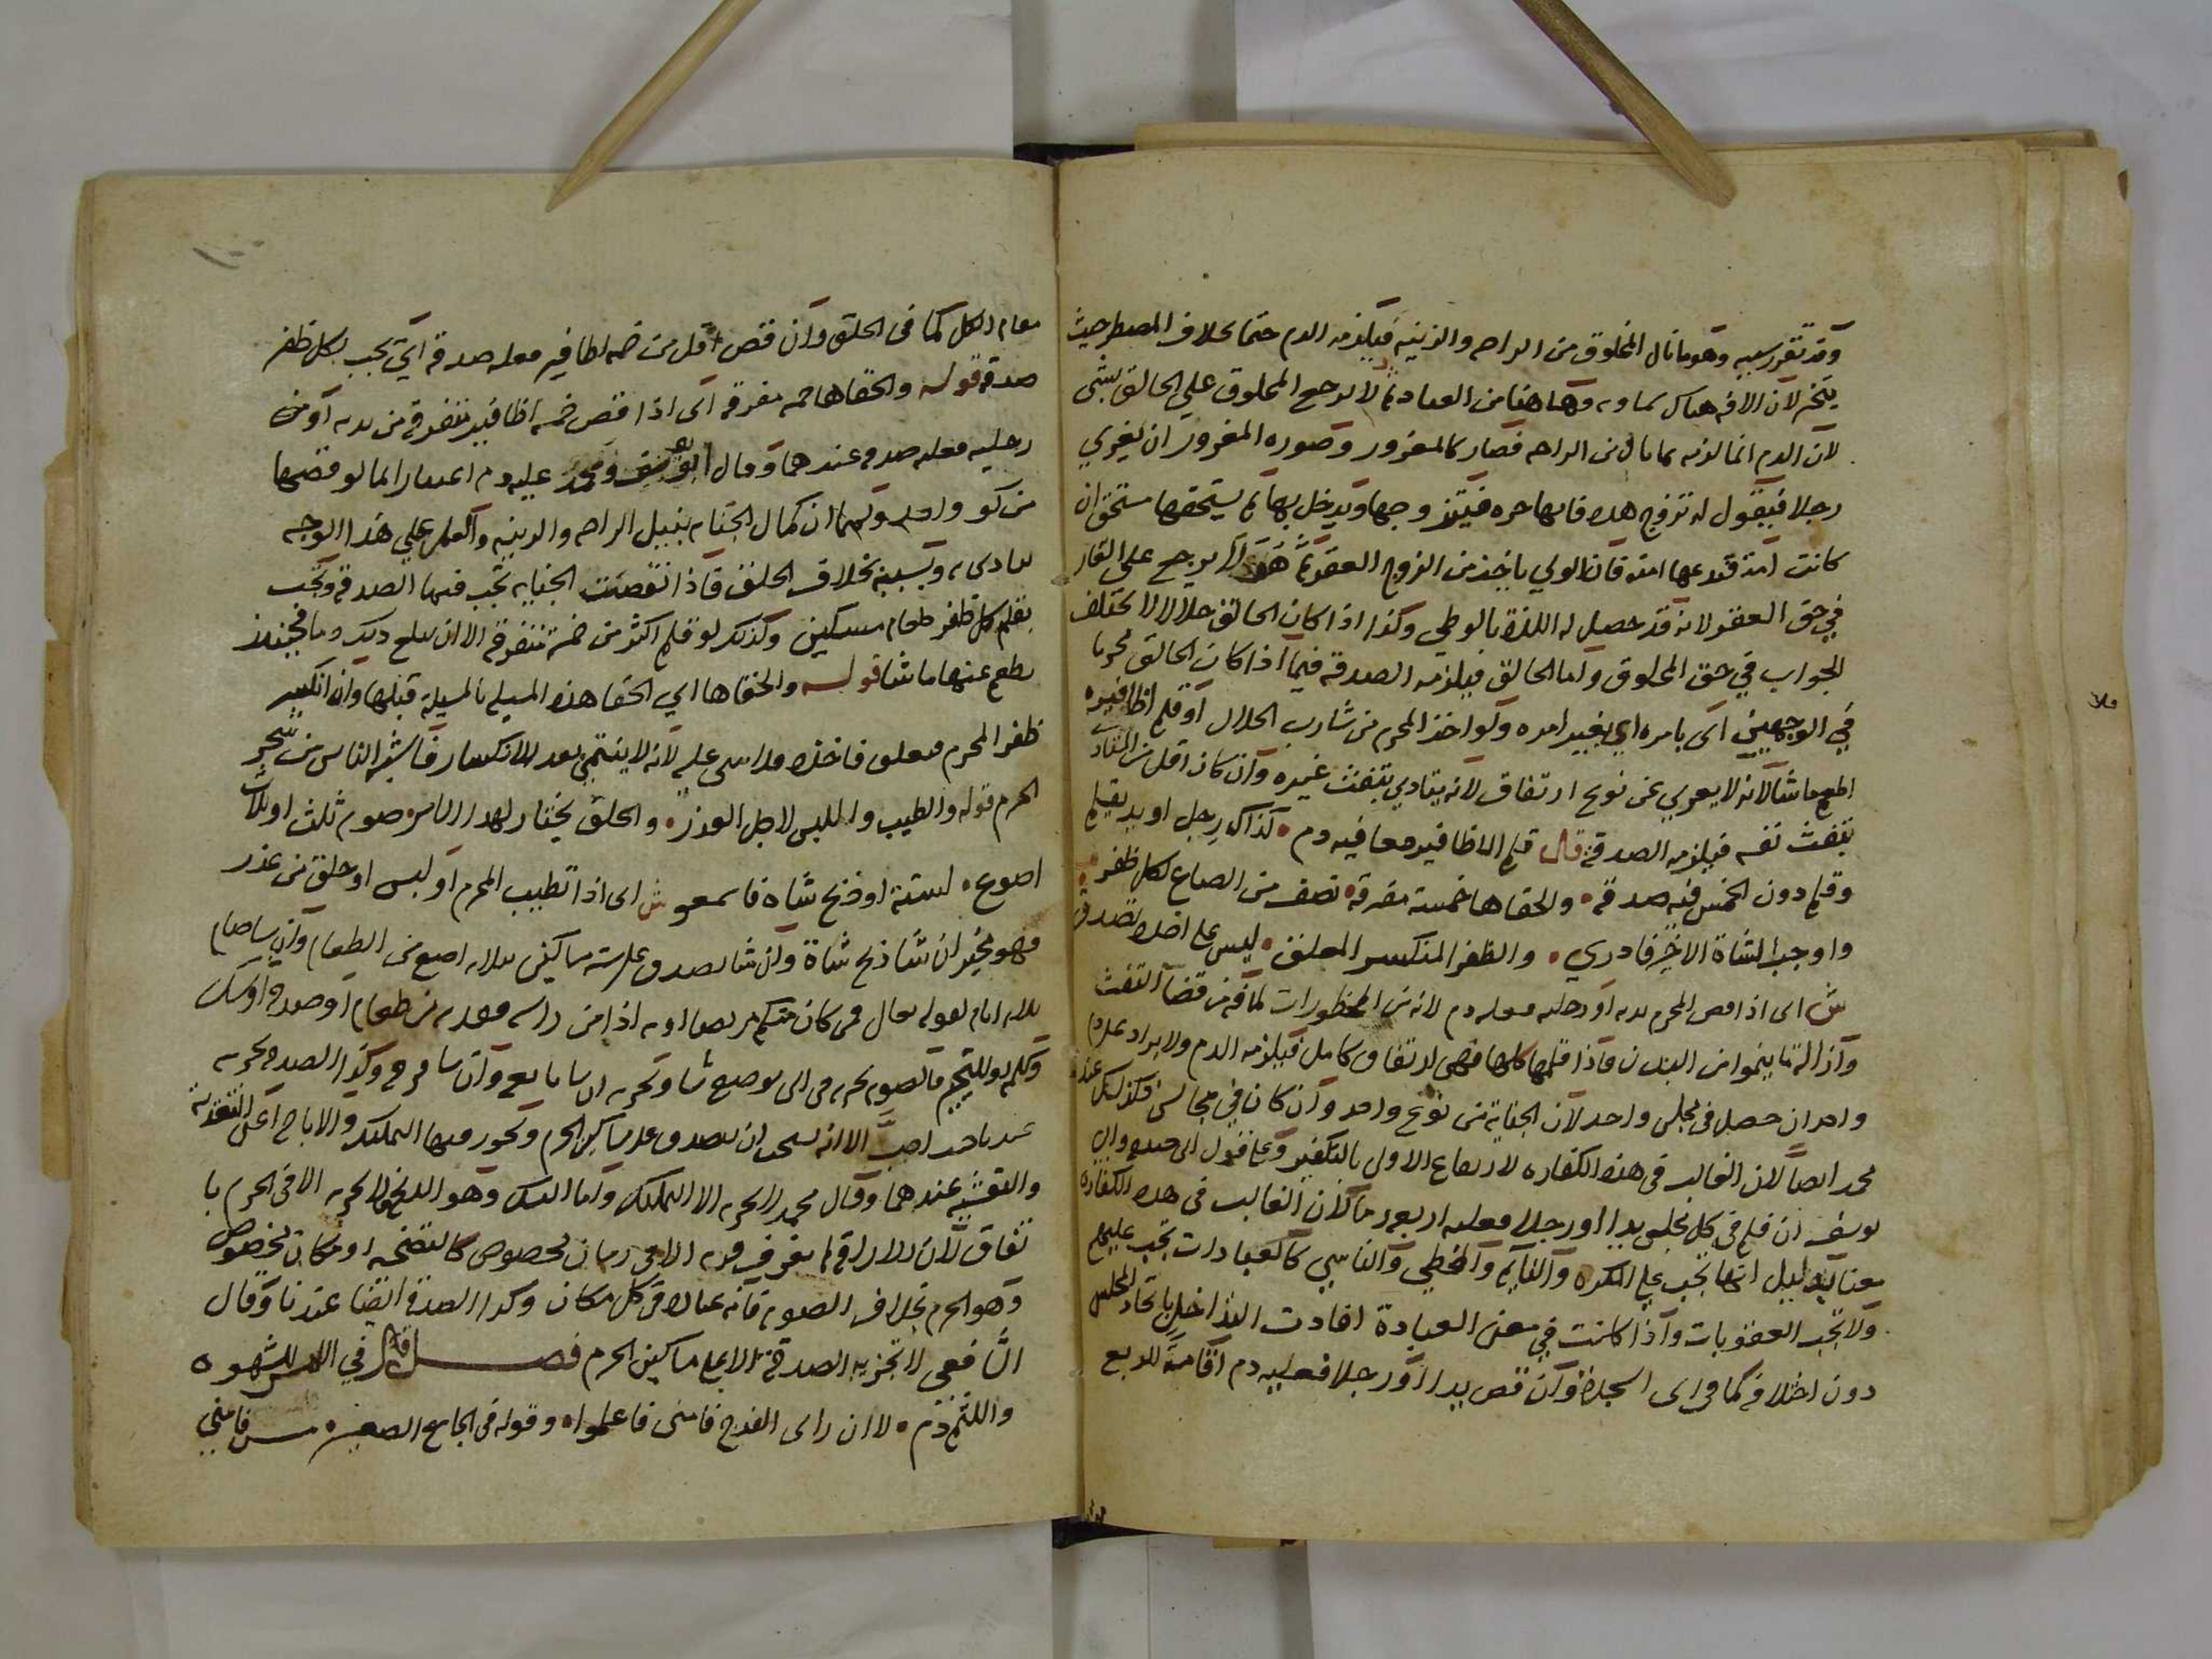 وقد تقرر سببه وهو ما نال المحلوق من الراحه والزينه فيلزمه الدم حتما بخلاف المضطر حيث
يتخير لان الافه هناك سماويه وهاهنا من العباد ثم لا يرجع المحلوق علي الحالق بشي
لان الدم انما لزمه بما نال من الراحه فصار كالمغرور وصوره المغرور ان يغري
رجلا فيقول له تزوج هذه فانها حره فيتزوجها ويدخل بها ثم يستحقها مستحق ان
كانت امته فان الولي ياخذ من الزوج العقر ثم هو لا يرجع على الغار
في حق العقر لانه قد حصل له اللذة بالوطي وكذا اذا كان الحالق حلالا لا يختلف
الجواب في حق المحلوق واما الحالق فيلزمه الصدقة فيما اذا كان الحالق محرما
في الوجهين اى بامره او بغير امره ولو اخذ المحرم من شارب الحلال او قلم اظافيره
اطعم ما شا لانه لا يعري عن نوع ارتفاق لانه يتاذي بتفث غيره وان كان اقل من التاذي
بتفث نفسه فيلزمه الصدقة قال قلم الاظافير معا فيه دم كذاك رجل او يد تقليم
وقلم دون الخمس فيه صدقه والحقاها خمسة مفرقه نصف من الصاع لكل ظفر
واوجب الشاة الاخير فادري والظفر المنكسر المعلق ليس على اخذه تصدق
ش اى اذا قص المحرم يديه او رجليه فعليه دم لانه من المحظورات لما فيه من قضا التفث
وازالة ما ينموا من البدن فاذا قلمها كلها فهى ارتفاق كامل فيلزمه الدم ولا يزاد على دم
واحد ان حصل فى مجلس واحد لان الجناية من نوع واحد وان كان في مجالس فكذلك عند
محمد ايضا لان الغالب فى هذه الكفاره لارتفاع الاولى بالتكفير وعلى قول ابى حنيفة وابى
يوسف ان قلم فى كل مجلس يدا او رجلا فعليه اربعه دما لان الغالب فى هذه الكفارة
معنا بدليل انها تجب علي المكره والنايم والمخطي والناسي كالعبادات تجب عليهم
ولا تجب العقوبات واذا كانت في معنى العبادة افادت التداخل باتحاد المجلس
دون اختلافه كما فى اى السجدة وان قص يدا او رجلا فعليه دم اقامة للربع
مقام الكل كما فى الحلق وان قص اقل من خمسه اظافير فعليه صدقه اي يجب بكل ظفر
صدقه قوله والحقاها خمسه مفرقه اى اذا قص خمسه اظافير متفرقة من يديه او من
رجليه فعليه صدقه عندهما وقال ومحمد عليه دم اعتبارا بما لو قصها
من كف واحد ولهما ان كمال الجنايه بنيل الراحه والزينه والقلم علي هذا الوجه
يتاذى به ويشينه بخلاف الحلق فاذا تقصت الجنايه تجب فيها الصدقة وتجب
بقلم كل ظفر طعام مسكين وكذلك لو قلم اكثر من خمسة متفرقه الا ان يبلغ ذلك دما فحينئذ
يطعم عنها ما شا قوله والحقاها اي الحقا هذه المسيله بالمسيلة قبلها وان انكسر
ظفر المحرم فتعلق فاخذه فلا شى عليه لانه لا ينمي بعد الانكسار فاشبه اليابس من شجر
الحرم قوله والطيب واللبس لاجل العذر والحلق يختار لهذا الامر صوم ثلث او ثلاث
اصوع لستة او ذبح شاه فاسمعو ش اى اذا تطيب المحرم او لبس او حلق من عذر
فهو مخير ان شا ذبح شاة وان شا تصدق على سته مساكين بثلاثه اصوع من الطعام وان شا صام
ثلاثه ايام لقوله تعالى فمن كان منكم مريضا او به اذا من راسه ففديه من طعام او صدقه او نسك
وكلمه او للتخيير فالصوم يجزيه فى اى موضع شا وتجزيه ان شا تابع وان شا فرق وكذا الصدقه تجزيه
عندنا حيث احب الا انه يستحب ان يتصدق على مساكين الحرم ويجوز فيها التمليك والاباحه اعنى التغدية
والتعشيه عندهما وقال محمد لا يجزيه الا التمليك واما النسك وهو الذبح فلا يجزيه الا فى الحرم با
تفاق لان الاراقة لم تعرف قربه الا فى زمان مخصوص كالتضحيه او مكان مخصوص
وهو الحرم بخلاف الصوم فانه عبادة فى كل مكان وكذا الصدقة ايضا عندنا وقال
الشافعى لا تجزيه الصدقة الا على مساكين الحرم فصل قال في اللمس للشهوه
واللثم دم لا ان راى الفرج فامنى فاعلموا وقوله فى الجامع الصغير مس فامني